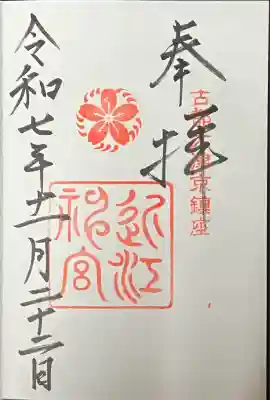 奉拝
古都大津京鎮座
近江
神宮
令和七年十一月二十二日